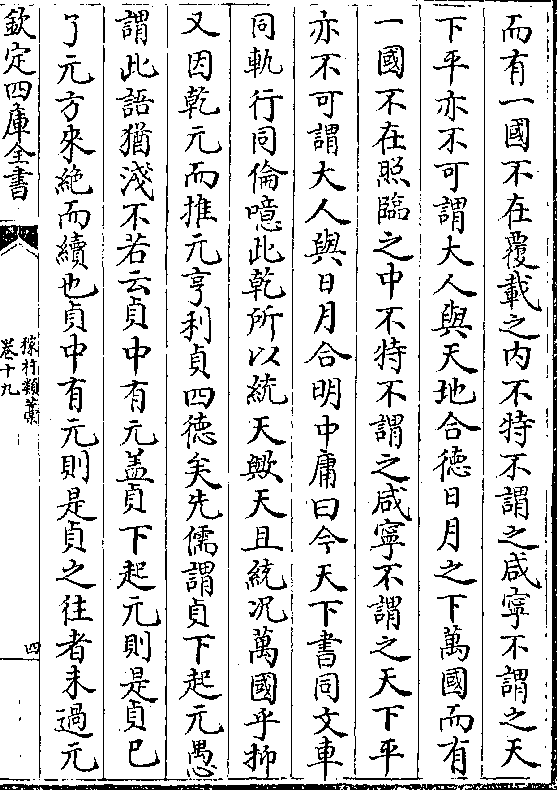 而有一國不在覆載之内不特不謂之咸寧不謂之天
下平亦不可謂大人與天地合德日月之下萬國而有
一國不在照臨之中不特不謂之咸寧不謂之天下平
亦不可謂大人與日月合明中庸曰今天下書同文車
同軌行同倫噫此乾所以統天歟天且統况萬國乎抑
又因乾元而推元亨利貞四徳矣先儒謂貞下起元愚
謂此語猶淺不若云貞中有元盖貞下起元則是貞已
了元方來絶而續也貞中有元則是貞之往者未過元
欽定四庫全書
稼村類藳
卷十九
四